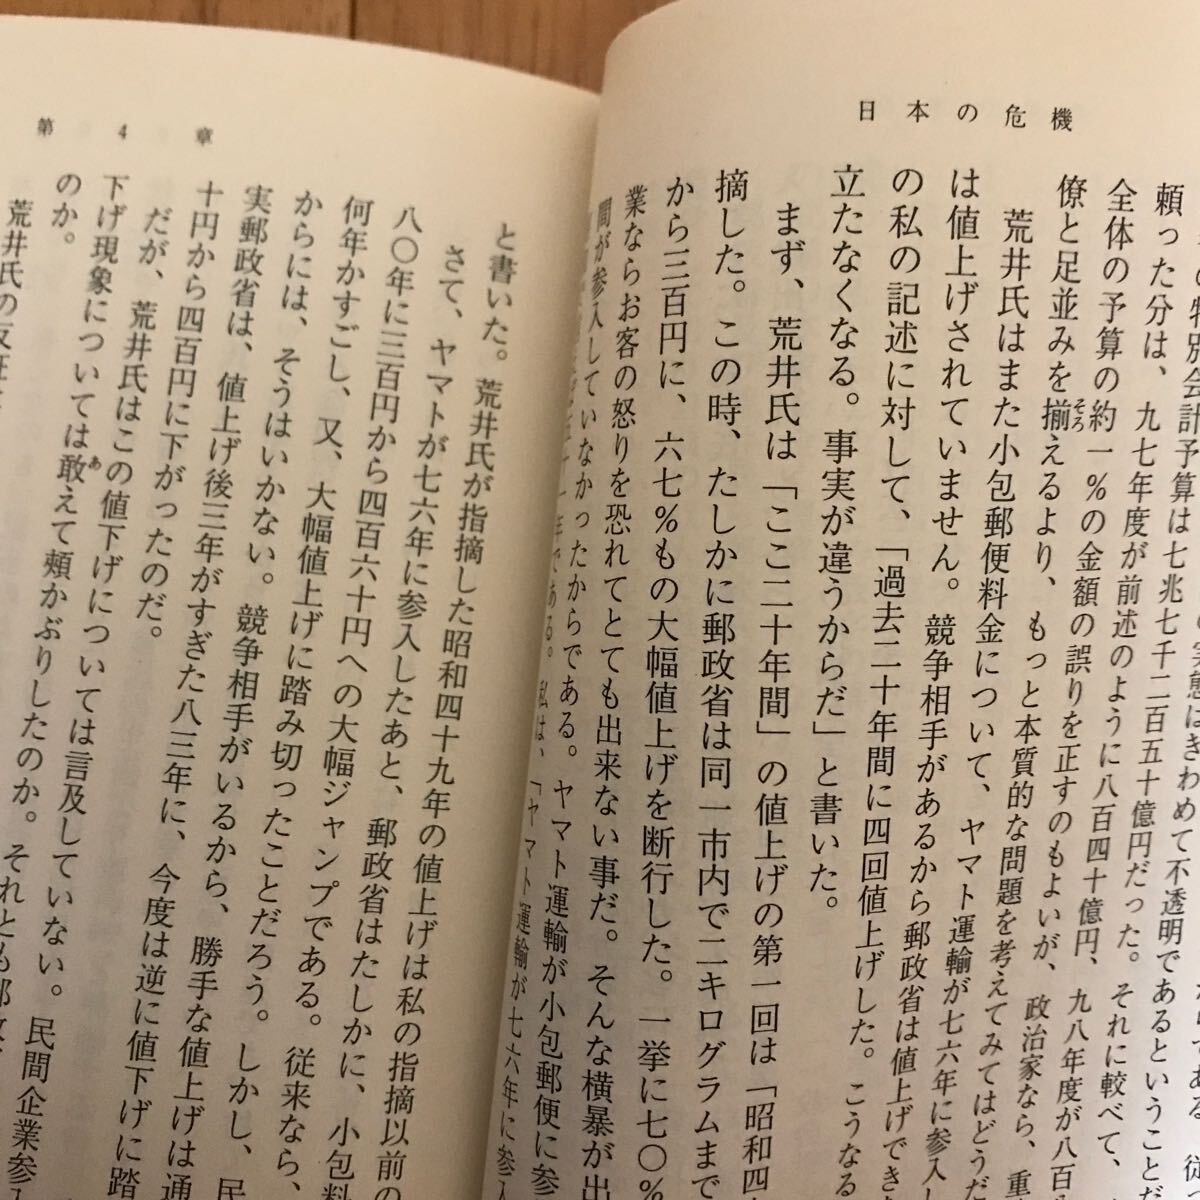 日本の危機
の特別会計予算は七兆七千二百五十億円だった。それに較べて、
頼った分は、九七年度が前述のように八百四十億円、九八年度が八百
全体の予算の約一%の金額の誤りを正すのもよいが、政治家なら、重
僚と足並みを揃えるより、もっと本質的な問題を考えてみてはどうだ
荒井氏はまた小包郵便料金について、ヤマト運輸が七六年に参入し
は値上げされていません。競争相手があるから郵政省は値上げできな
の私の記述に対して、「過去二十年間に四回値上げした。こうなる
立たなくなる。事実が違うからだ」と書いた。
まず、荒井氏は「ここ二十年間」の値上げの第一回は「昭和四
摘した。この時、たしかに郵政省は同一市内で二キログラムまで
から三百円に、六七%もの大幅値上げを断行した。一挙に七〇%
業ならお客の怒りを恐れてとても出来ない事だ。そんな横暴が出
間が参入していなかったからである。ヤマト運輸が小包郵便に参
年である。私は、「ヤマト運輸が七六年に参
第4章
と書いた。荒井氏が指摘した昭和四十九年の値上げは私の指摘以前の
さて、ヤマトが七六年に参入したあと、郵政省はたしかに、小包料
八〇年に三百円から四百六十円への大幅ジャンプである。従来なら、
何年かすごし、又、大幅値上げに踏み切ったことだろう。しかし、民
からには、そうはいかない。競争相手がいるから、勝手な値上げは通
実郵政省は、値上げ後三年がすぎた八三年に、今度は逆に値下げに踏
十円から四百円に下がったのだ。
だが、荒井氏はこの値下げについては言及していない。民間企業参入
下げ現象については敢えて頬かぶりしたのか。それとも郵政
のか。
荒井氏の反証